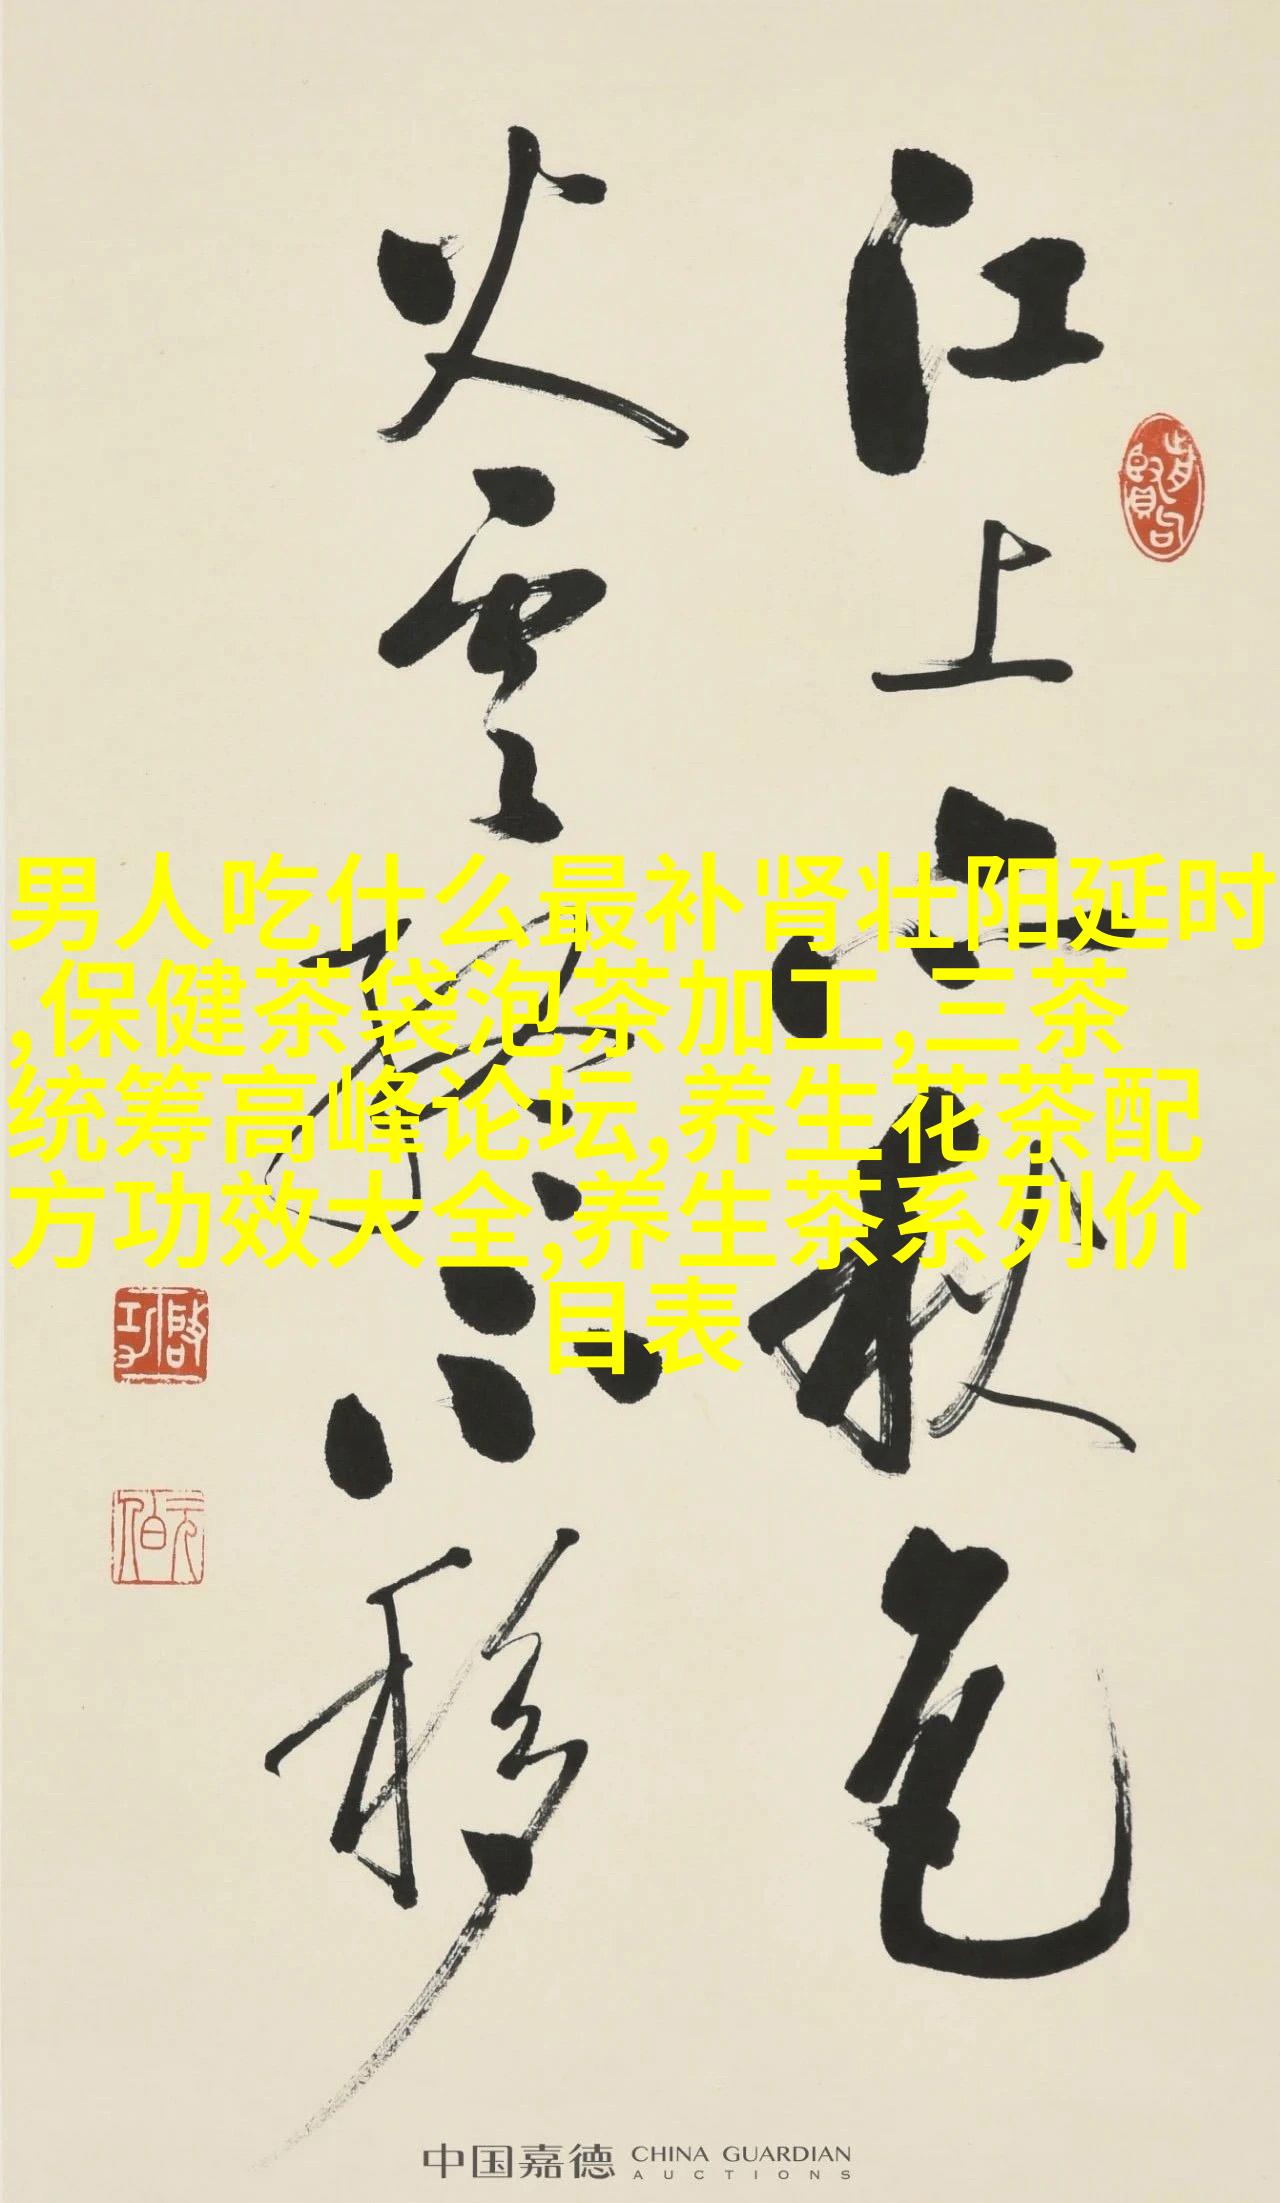 江上亦秋色
火雲終不移
啓功
元伯
男人吃什么最补肾壮阳延时
,保健茶袋泡茶加工,三茶
统筹高峰论坛,养生花茶配
方功效大全,养生茶系列价
目表
中国嘉德 CHINA GUARDIAN
AUCTIONS